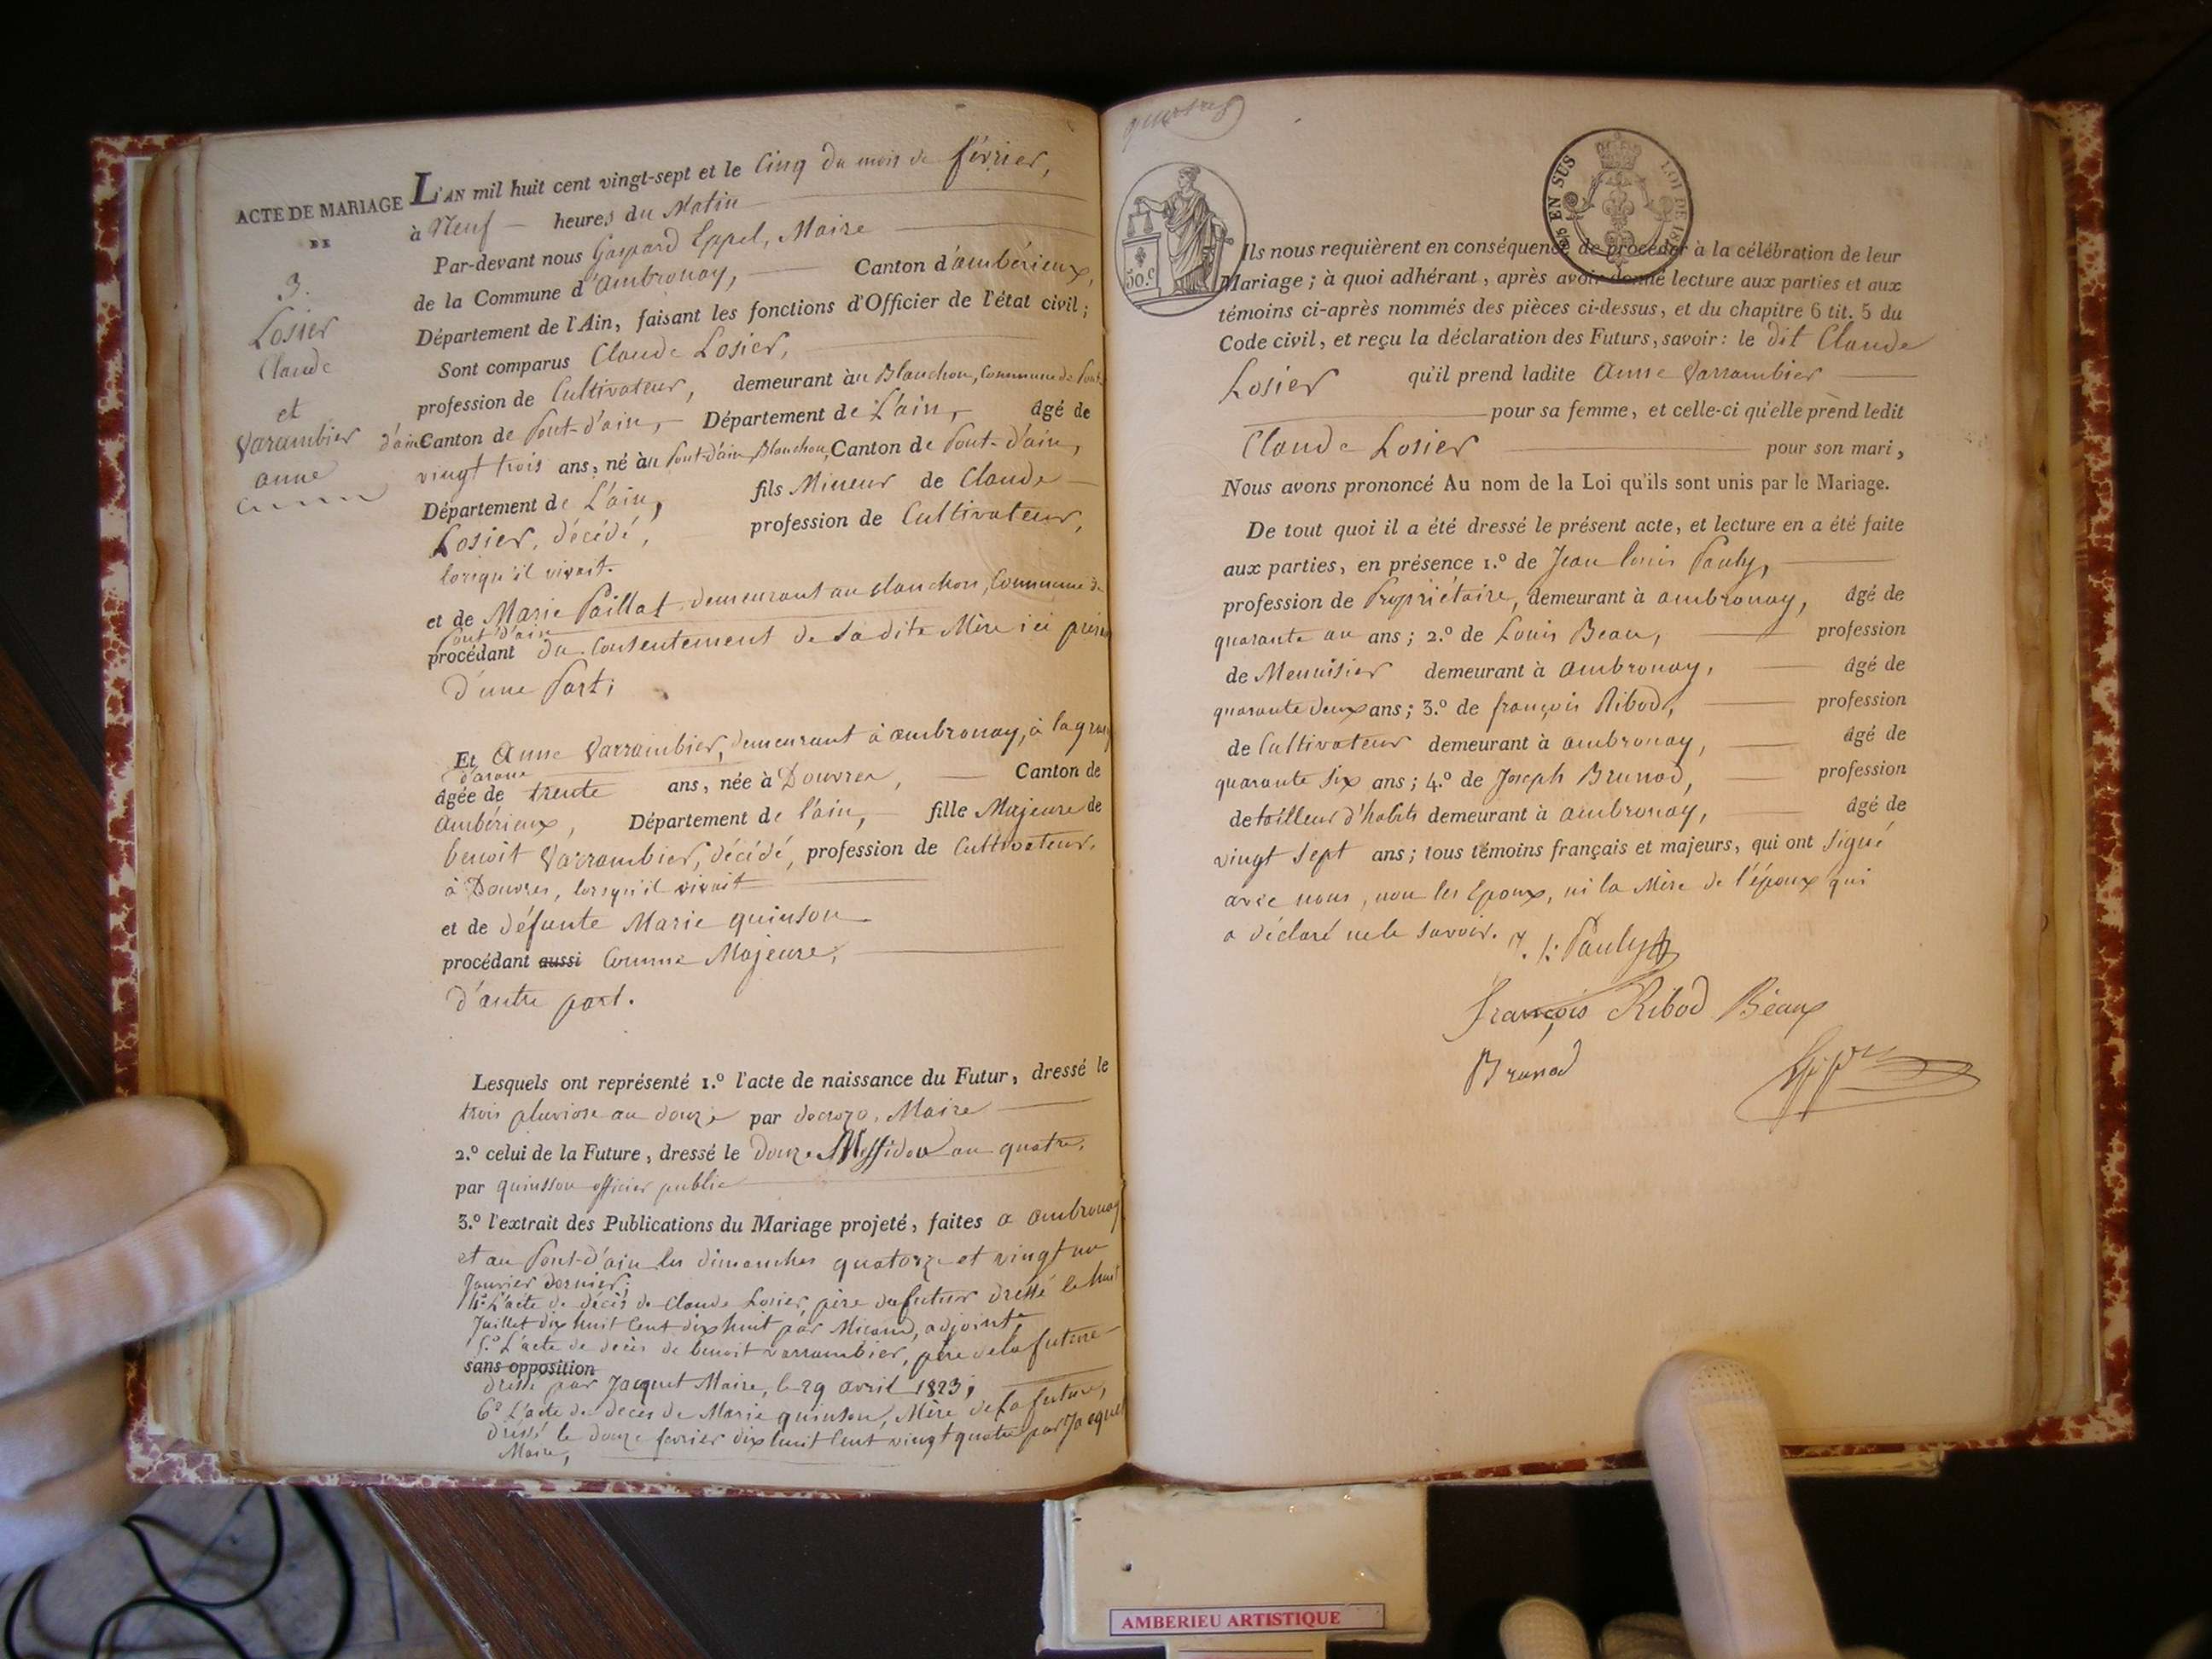 ACTE DE MARIAGE
DE
3.
Losier
Claude
et
Varambier
anne
L'AN mil huit cent vingt-sept et le Cinq du mois de février,
à Neuf heures du Matin
Par-devant nous Gaspard Eppel, Maire
de la Commune d'ambronay, Canton d'ambérieux,
Département de l'Ain, faisant les fonctions d'Officier de l'état civil;
Sont comparus Claude Losier,
profession de Cultivateur, demeurant àu Blanchon, Commune de Pont
d'ain Canton de Pont-d'ain, Département de L'ain, âgé de
vingt trois ans, né àu Pont-d'ain, Blanchon, Canton de Pont-d'ain,
Département de L'ain, fils Mineur de Claude
Losier, décédé, profession de Cultivateur,
lorsqu'il vivait.
et de Marie Paillat demeurant au blanchon, Commune de
Pont d'ain
procédant du Consentement de Sa dite Mère ici
d'une Part;
Et Anne Varrambier, demeurant à ambronay, à la
âgée de trente ans, née à Douvres, Canton de
Ambérieux, Département de l'ain, fille Majeure de
benoit Varrambier, décédé, profession de Cultivateur,
à Douvres, lorsqu'il vivait
et de défunte Marie quinson
procédant aussi Comme Majeure,
d'autre part.
Lesquels ont représenté 1.º l'acte de naissance du Futur, dressé le
trois pluviose an douze par decrozo, Maire
2.º celui de la Future, dressé le Douze Messidor an quatre,
par quinsson officier public
3.º l'extrait des Publications du Mariage projeté, faites a ambronay
et au Pont-d'ain les dimanches quatorze et vingt un
Janvier dernier;
4.º L'acte de décès de Claude Losier, père du futur dressé le huit
Juillet dix huit Cent dix huit par Micand, adjoint,
5.º L'acte de décès de benoit varrambier, père de la future
sans opposition
dressé par Jacquet Maire, le 29 avril 1823;
6.º L'acte de décès de Marie quinson, Mère de la future,
dressé le douze fevrier dix huit Cent vingt quatre par Jacquet
Maire,
50.c
EN SUS
LOI DE 18
Ils nous requièrent en conséquence de procéder à la célébration de leur
Mariage; à quoi adhérant, après avoir donné lecture aux parties et aux
témoins ci-après nommés des pièces ci-dessus, et du chapitre 6 tit. 5 du
Code civil, et reçu la déclaration des Futurs, savoir: le dit Claude
Losier qu'il prend ladite Anne Varrambier
pour sa femme, et celle-ci qu'elle prend ledit
Claude Losier pour son mari,
Nous avons prononcé Au nom de la Loi qu'ils sont unis par le Mariage.
De tout quoi il a été dressé le présent acte, et lecture en a été faite
aux parties, en présence 1.º de Jean louis Pauly,
profession de Propriétaire, demeurant à ambronay, âgé de
quarante un ans; 2.º de Louis Beau, profession
de Menuisier demeurant à ambronay, âgé de
quarante deux ans; 3.º de françois Ribod, profession
de Cultivateur demeurant à ambronay, âgé de
quarante Six ans; 4.º de Joseph Brunod, profession
de tailleur d'habits demeurant à ambronay, âgé de
vingt Sept ans; tous témoins français et majeurs, qui ont Signé
avec nous, non les Epoux, ni la Mère de l'époux qui
a déclaré ne le Savoir.
Pauly
François Ribod Béaux
Brunod
AMBERIEU ARTISTIQUE